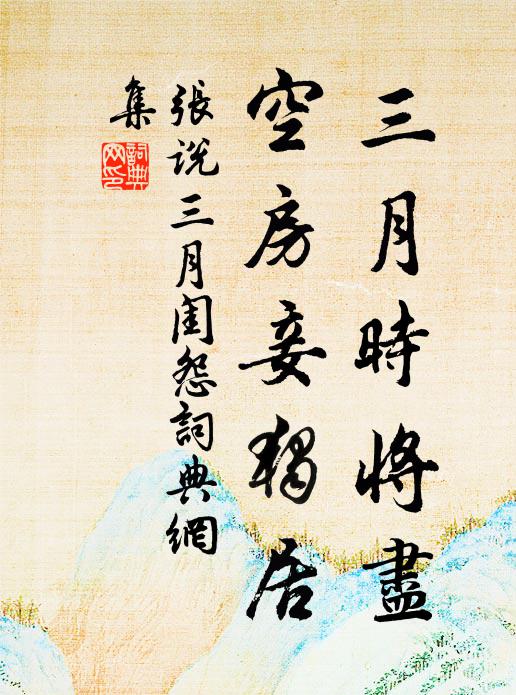 三月時將盡
空房妾獨居
張說三月閨怨詞典網
集
詞典
網印